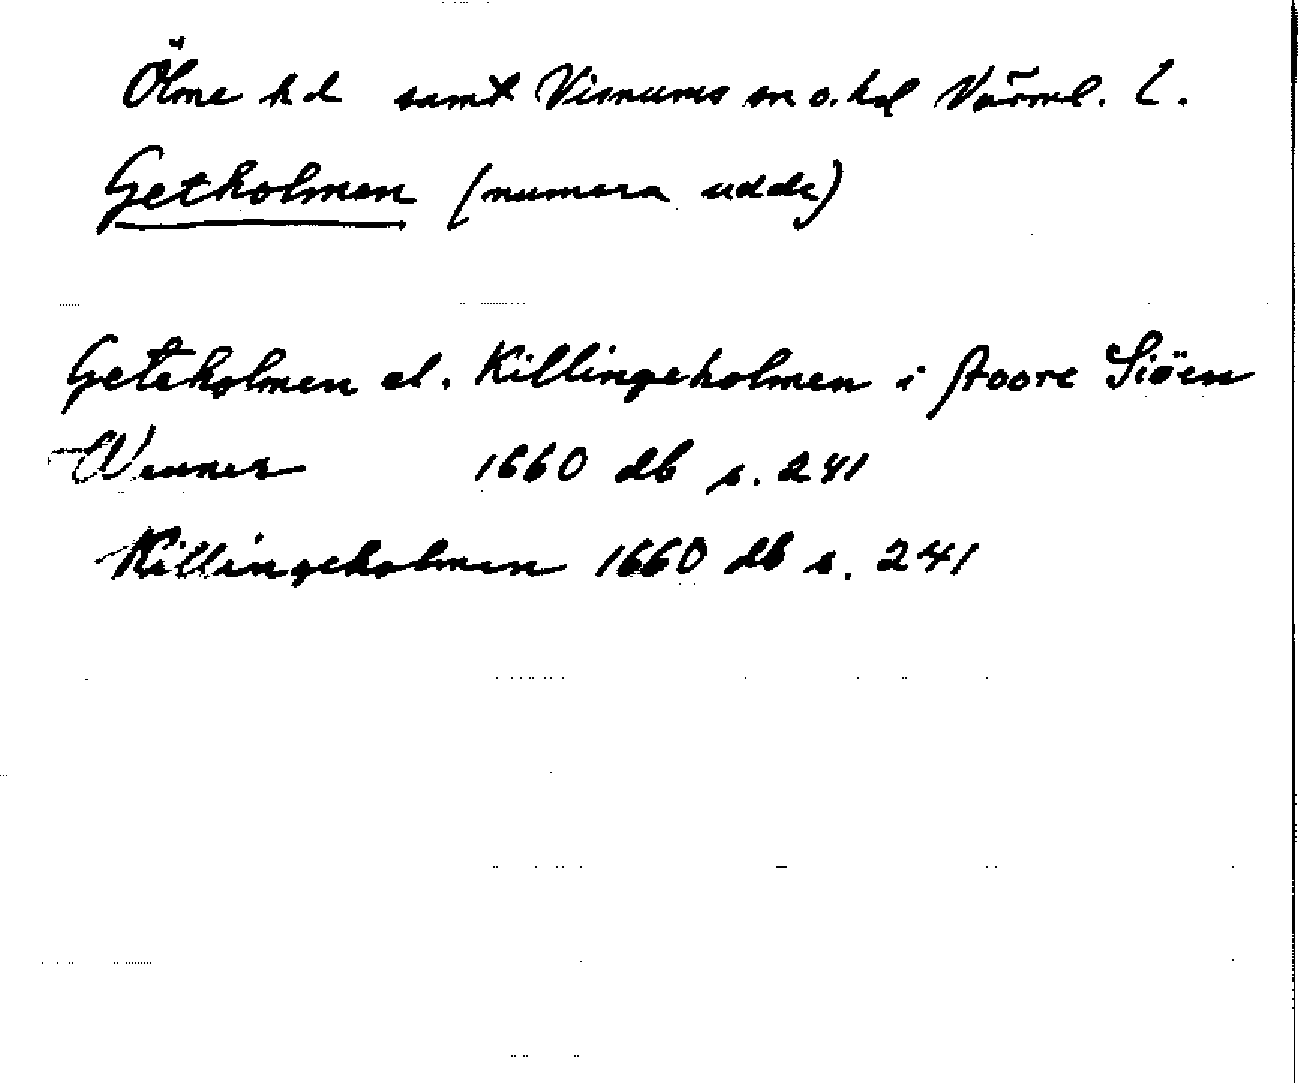 Ölme hd samt Visnums sn o. hd Värml. l.
Getholmen (numera udde)
Geteholmen el. Killingeholmen i stoore Siöen
Wenner 1660 db s. 241
Killingeholmen 1660 db s. 241